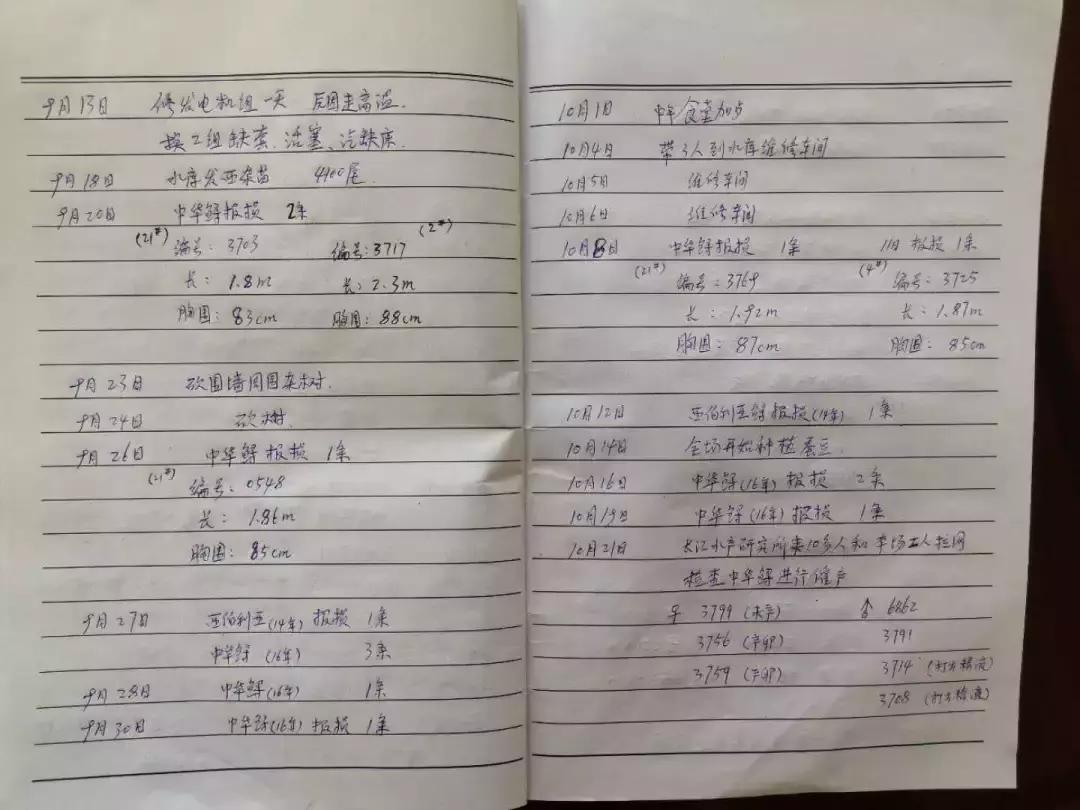 9月13日 修发电机组一天 反因走高温.
换2组缺套.活塞、汽缺床.
9月18日 水库发西杂苗 4400尾.
9月20日 中华鲟报损 2条
(21#) 编号:3703 编号:3717 (2#)
长:1.8m 长:2.3m
胸围:83cm 胸围:88cm
9月23日 砍围墙周围杂树.
9月24日 砍树.
9月26日 中华鲟报损 1条
(21#) 编号:0548
长:1.86m
胸围:85cm
9月27日 西伯利亚(14年)报损 1条
中华鲟(16年) 3条
9月28日 中华鲟(16年) 1条
9月30日 中华鲟(16年)报损 1条
10月1日 中午食堂加点
10月4日 带3人到水库维修车间
10月5日 维修车间
10月6日 维修车间
10月8日 中华鲟报损 1条 11日报损1条
(21#) 编号:3769 (4#) 编号:3725
长:1.92m 长:1.87m
胸围:87cm 胸围:85cm
10月12日 西伯利亚鲟报损(14年) 1条
10月14日 全场开始种植蚕豆.
10月16日 中华鲟(16年)报损 2条
10月19日 中华鲟(16年)报损 1条
10月21日 长江水产研究所来10多人和本场工人拦网
检查中华鲟进行催产
♀ 3799(未产) ♂ 6862
3756(产卵) 3791
3759(产卵) 3714(打出精液)
3708(打出精液)